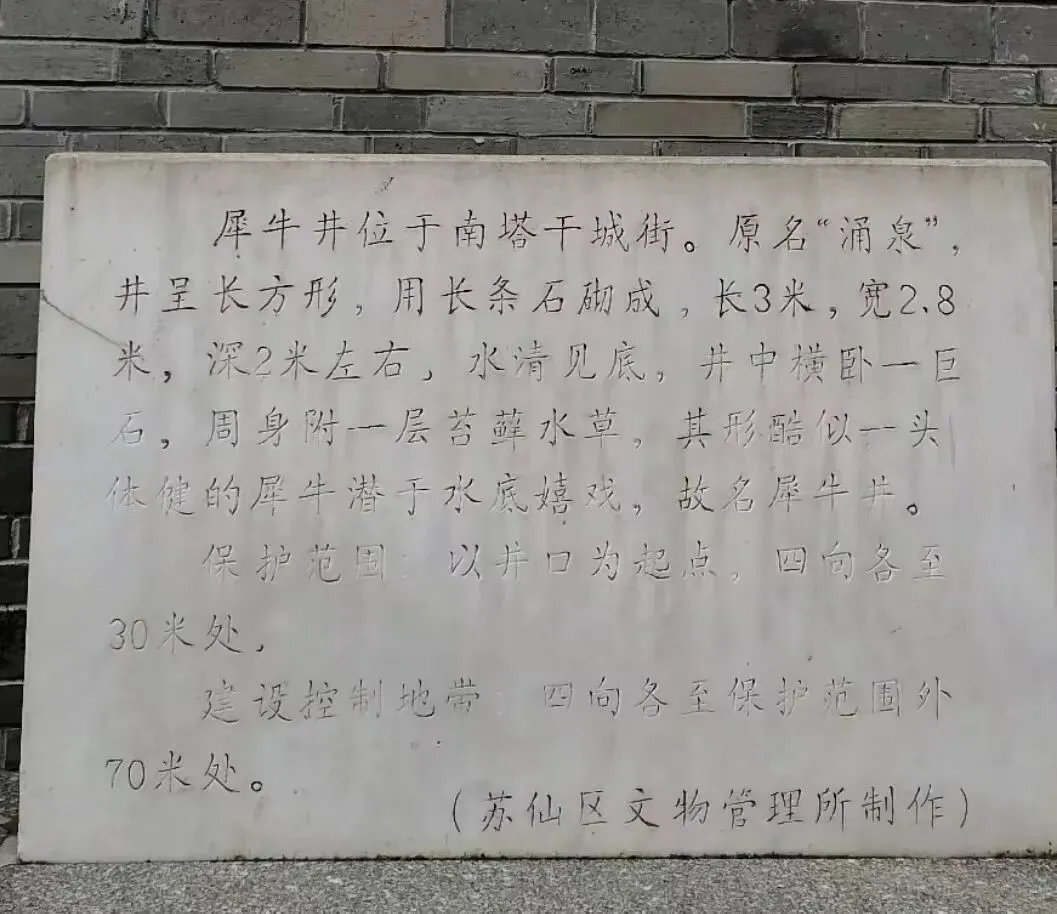 犀牛井位于南塔干城街。原名“涌泉”，
井呈长方形，用长条石砌成，长3米，宽2.8
米，深2米左右，水清见底，井中横卧一巨
石，周身附一层苔藓水草，其形酷似一头
体健的犀牛潜于水底嬉戏，故名犀牛井。
保护范围：以井口为起点，四向各至
30米处，
建设控制地带：四向各至保护范围外
70米处。
（苏仙区文物管理所制作）